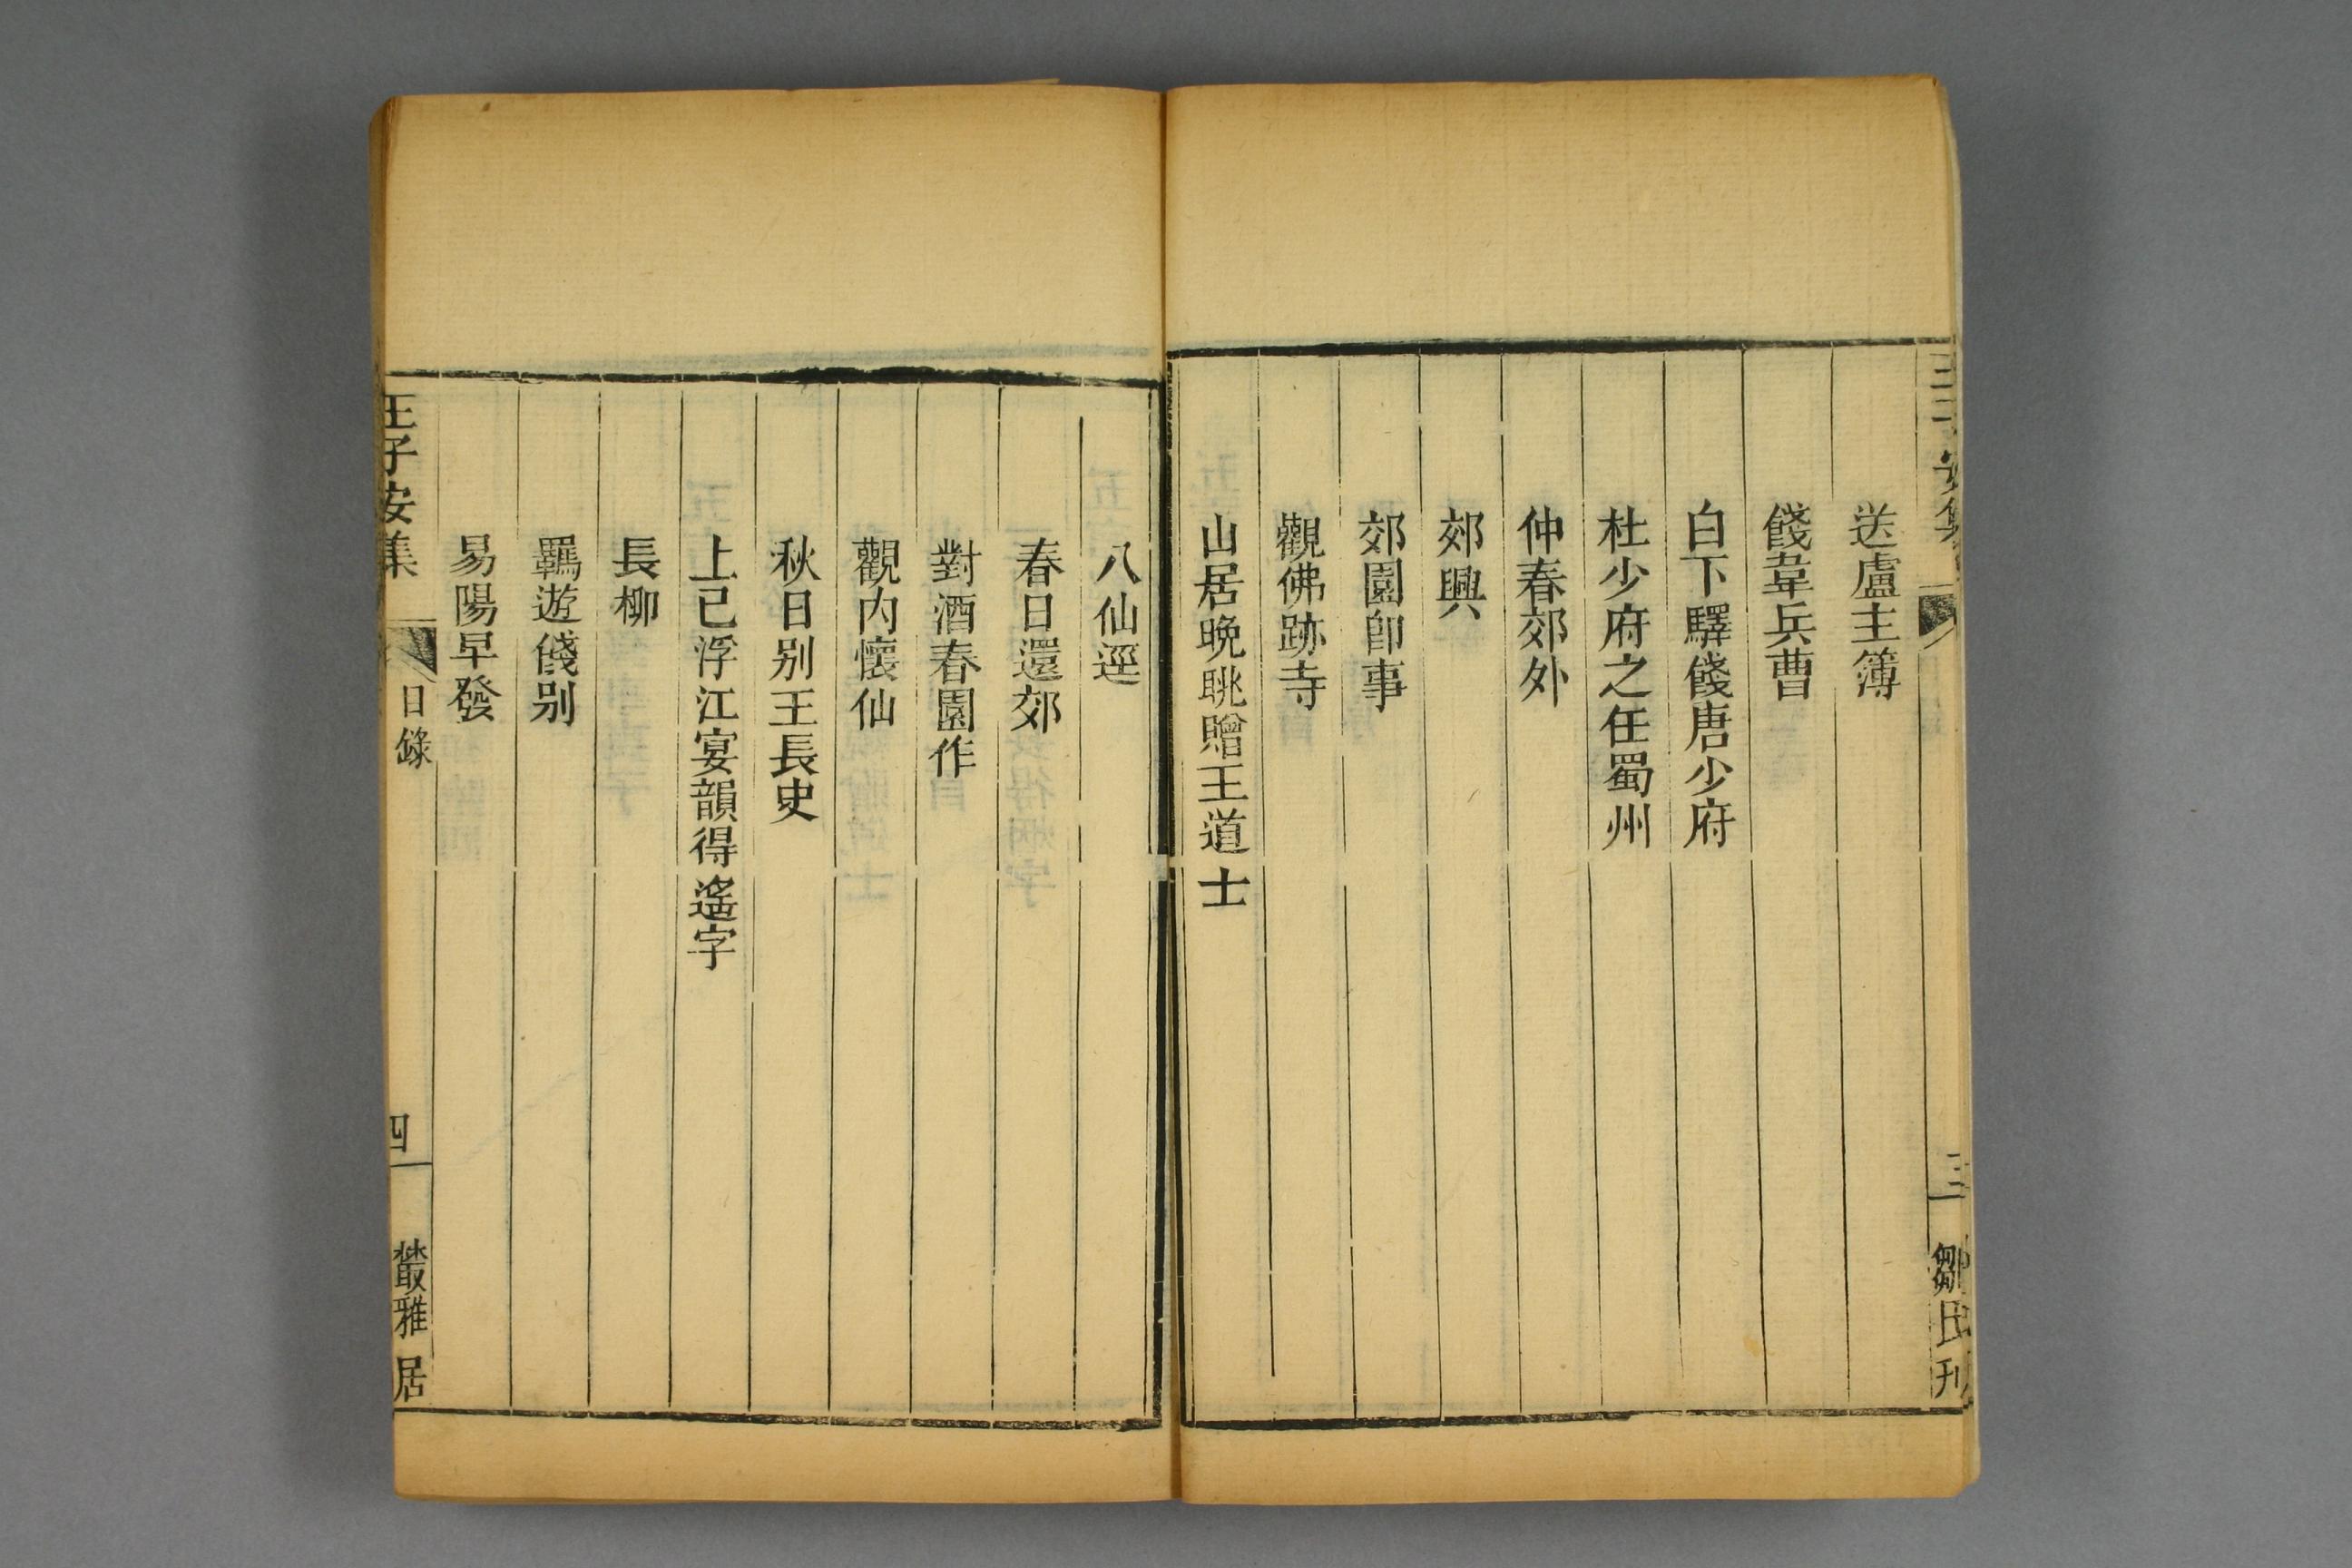 送盧主簿
餞韋兵曹
白下驛餞唐少府
杜少府之任蜀州
仲春郊外
郊興
郊園卽事
觀佛跡寺
山居晚眺贈王道士
三
鄒氏刊
八仙逕
春日還郊
對酒春園作
觀内懷仙
秋日别王長史
上巳浮江宴韻得遙字
長柳
羈遊餞别
易陽早發
王子安集
目錄
四
叢雅居